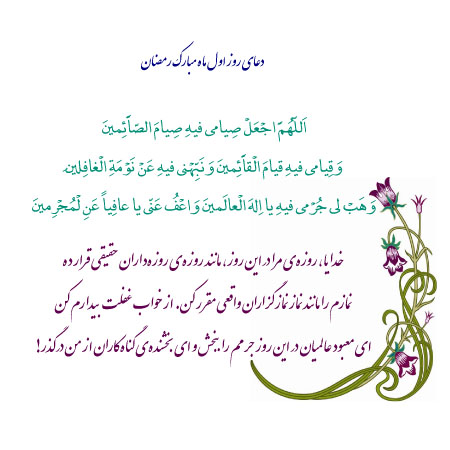 دعای روز اول ماه مبارک رمضان
اَللّهُمَّ اجْعَلْ صِیامی فیهِ صِیامَ الصّاَئِمینَ
وَ قِیامی فیهِ قیامَ الْقاَئِمینَ وَ نَبِّهْنی فیهِ عَنْ نَوْمَةِ الْغافِلینَ
وَ هَبْ لی جُرْمی فیهِ یا اِلهَ الْعالَمینَ وَ اعْفُ عَنّی یا عافِیاً عَنِ لْمُجْرِمینَ
خدایا، روزه‌ی مرا در این روز، مانند روزه‌ی روزه‌داران حقیقی قرار ده
نمازم را مانند نماز نمازگزاران واقعی مقرر کن. از خواب غفلت بیدارم کن
ای معبود عالمیان در این روز جرمم را ببخش و ای بخشنده‌ی گناه‌کاران از من درگذر!